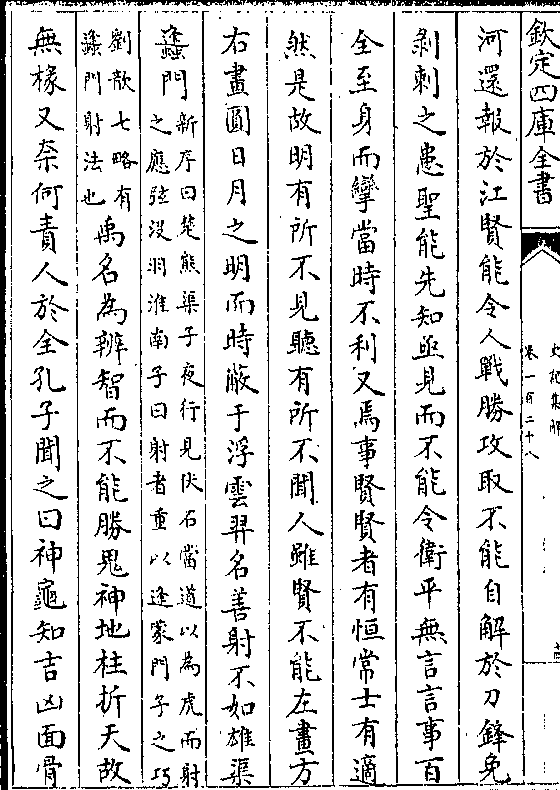 欽定四庫全書
史記集解
卷一百二十八
河還報於江賢能令人戰勝攻取不能自解於刀鋒免
剝刺之患聖能先知亟見而不能令衛平無言言事百
全至身而攣當時不利又焉事賢賢者有恒常士有適
然是故明有所不見聽有所不聞人雖賢不能左畫方
右畫圓日月之明而時蔽于浮雲羿名善射不如雄渠
蠭門新序曰楚熊渠子夜行見伏石當道以為虎而射
之應弦沒羽淮南子曰射者重以逢蒙門子之巧
劉歆七略有
蠭門射法也禹名為辨智而不能勝鬼神地柱折天故
無椽又奈何責人於全孔子聞之曰神龜知吉凶而骨